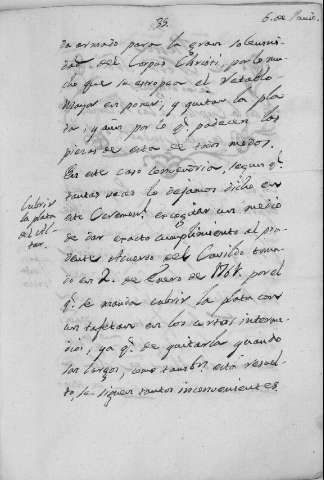 39.
6. de Junio.
da armado para la gran solemni-
dad del Corpus Christi, por lo mu-
cho que se estropea el Retablo
Mayor en poner, y quitar la pla
ta; y aun por lo q.e padecen las
piezas de esta de todos modos.
En este caso convendria, segun q.e
tantas veces lo dejamos dicho en
este Ceremon.l excogitar un medio
de dar exacto cumplimiento al pru-
dente acuerdo del Cavildo toma-
do en 2. de Enero de 1764. por el
q.e se manda cubrir la plata con
un tafetan en los cortos interme-
dios, ya q.e de quitarla quando
son largos, como tambn. está resuel-
to, se siguen tantos inconvenientes.
Cubrir
la plata
del Al-
tar.